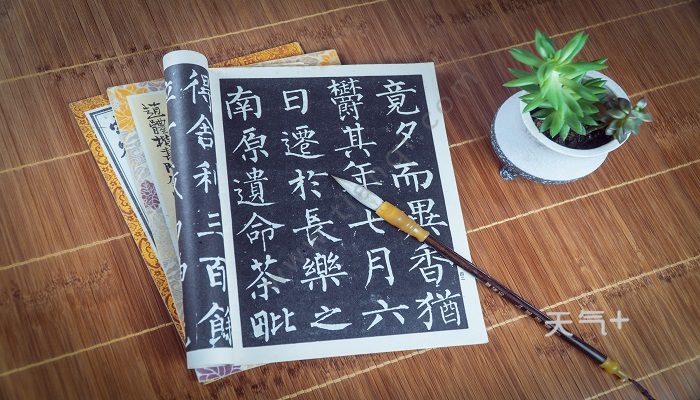 竟夕而異香猶
鬱其年七月六
日遷於長樂之
南原遺命茶毗
得舍利三百餘
天气+